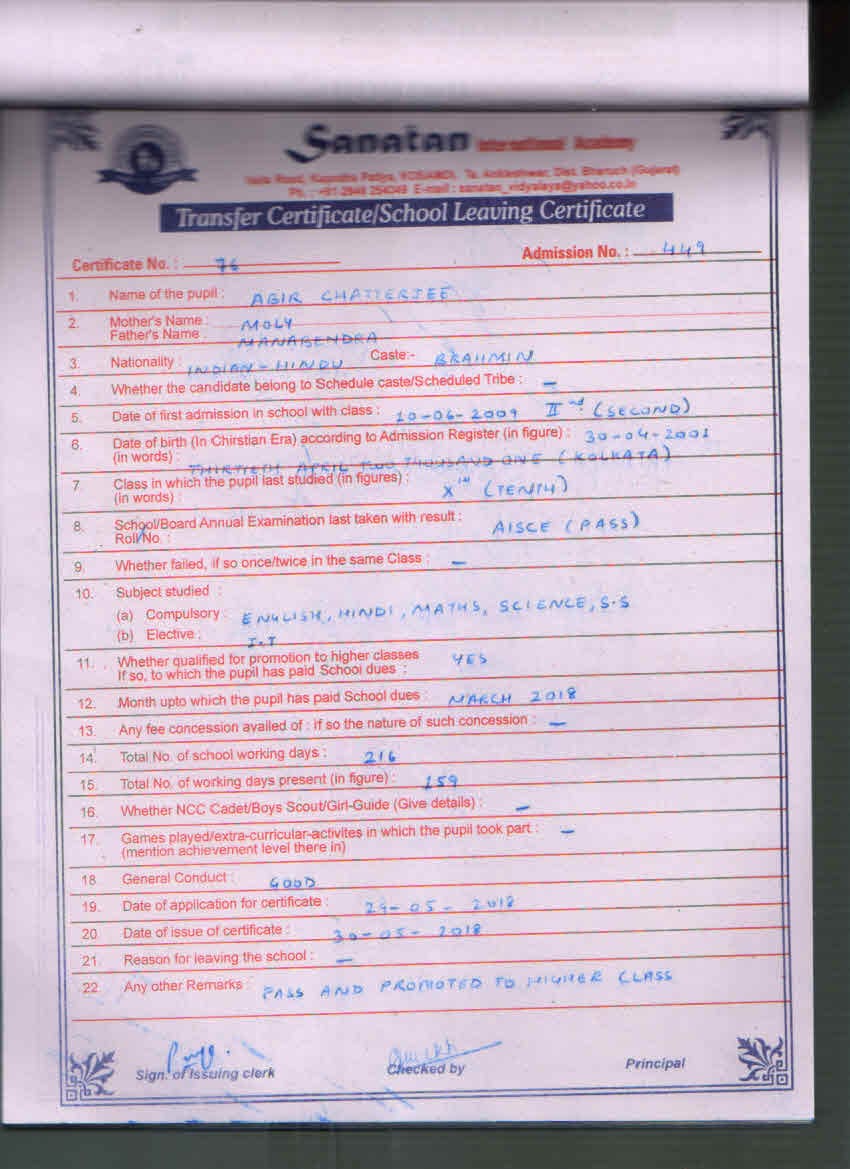 Sanatan International Academy
Road, Kapodra Patiya, KOSAMDI, Ta. Ankleshwar, Dist. Bharuch (Gujarat)
Ph. : +91-2646 254049 E-mail : sanatan_vidyalaya@yahoo.co.in
Transfer Certificate/School Leaving Certificate
Certificate No. : 76 Admission No. : 449
1. Name of the pupil : ABIR CHATTERJEE
2. Mother's Name : MOLY
Father's Name : MANABENDRA
3. Nationality : INDIAN - HINDU Caste:- BRAHMIN
4. Whether the candidate belong to Schedule caste/Scheduled Tribe : —
5. Date of first admission in school with class : 10-06-2009 IInd (SECOND)
6. Date of birth (In Chirstian Era) according to Admission Register (in figure) : 30-04-2001
(in words) : THIRTIETH APRIL TWO THOUSAND ONE (KOLKATA)
7. Class in which the pupil last studied (in figures) : XTH (TENTH)
(in words) :
8. School/Board Annual Examination last taken with result : AISCE (PASS)
Roll No. :
9. Whether failed, if so once/twice in the same Class : —
10. Subject studied :
(a) Compulsory : ENGLISH, HINDI, MATHS, SCIENCE, S.S
(b) Elective : I.T
11. Whether qualified for promotion to higher classes YES
If so, to which the pupil has paid School dues :
12. Month upto which the pupil has paid School dues : MARCH 2018
13. Any fee concession availed of : if so the nature of such concession : —
14. Total No. of school working days : 216
15. Total No. of working days present (in figure) : 159
16. Whether NCC Cadet/Boys Scout/Girl-Guide (Give details) : —
17. Games played/extra-curricular-activites in which the pupil took part : —
(mention achievement level there in)
18. General Conduct : GOOD
19. Date of application for certificate : 29-05-2018
20. Date of issue of certificate : 30-05-2018
21. Reason for leaving the school : —
22. Any other Remarks : PASS AND PROMOTED TO HIGHER CLASS
Sign. of Issuing clerk Checked by Principal